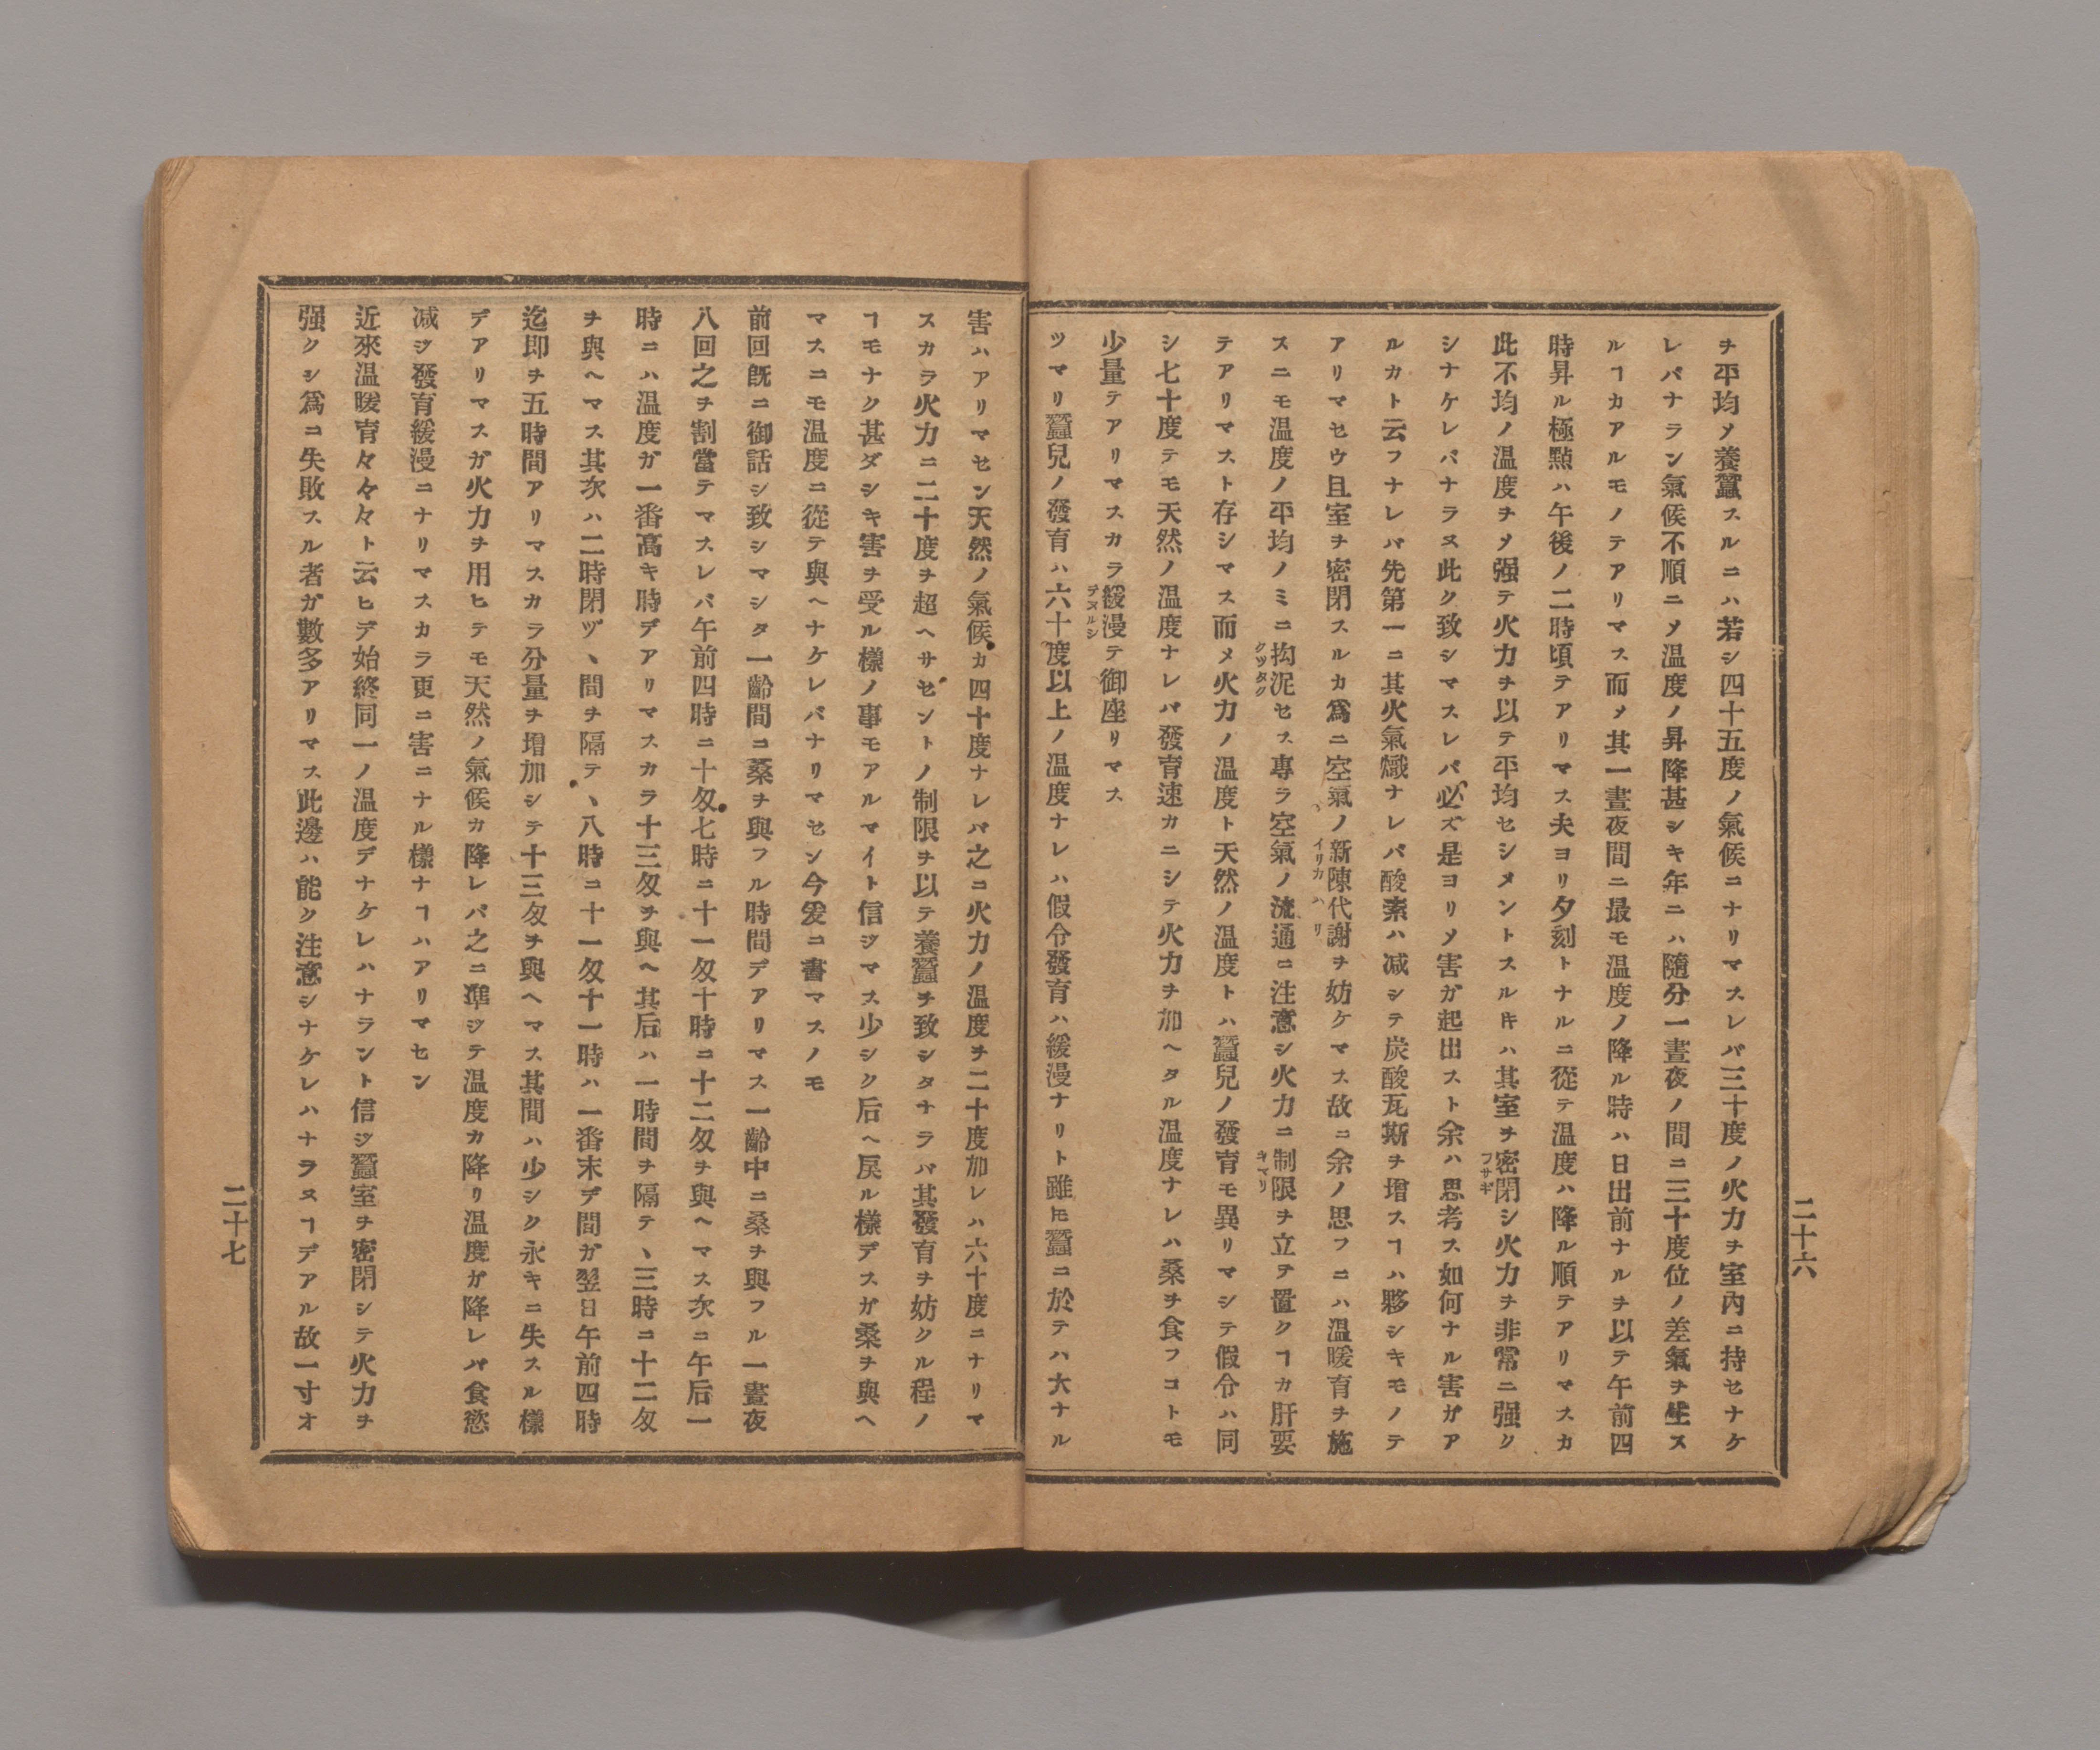 ヲ平均〆養蠶スルニハ若シ四十五度ノ氣候ニナリマスレバ三十度ノ火力ヲ室內ニ持セナケ
レバナラン氣候不順ニ〆温度ノ昇降甚シキ年ニハ隨分一晝夜ノ間ニ三十度位ノ差氣ヲ生ス
ルヿカアルモノテアリマス而〆其一晝夜間ニ最モ温度ノ降ル時ハ日出前ナルヲ以テ午前四
時昇ル極點ハ午後ノ二時頃テアリマス夫ヨリ夕刻トナルニ從テ温度ハ降ル順テアリマスカ
此不均ノ温度ヲ〆强テ火力ヲ以テ平均セシメントスルキハ其室ヲ密閉シ火力ヲ非常ニ强ク
フサギ
シナケレバナラヌ此ク致シマスレバ必ズ是ヨリ〆害ガ起出スト余ハ思考ス如何ナル害ガア
ルカト云フナレバ先第一ニ其火氣熾ナレバ酸素ハ减シテ炭酸瓦斯ヲ增スヿハ夥シキモノテ
アリマセウ且室ヲ密閉スルカ爲ニ空氣ノ新陳代謝ヲ妨ケマス故ニ余ノ思フニハ温暖育ヲ施
イリカハリ
スニモ温度ノ平均ノミニ拘泥セス專ラ空氣ノ流通ニ注意シ火力ニ制限ヲ立テ置クヿカ肝要
クツタク
キマリ
テアリマスト存シマス而〆火力ノ温度ト天然ノ温度トハ蠶兒ノ發育モ異リマシテ假令ハ同
シ七十度テモ天然ノ温度ナレバ發育速カニシテ火力ヲ加ヘタル温度ナレハ桑ヲ食フコトモ
少量テアリマスカラ緩漫テ御座リマス
テヌルシ
ツマリ蠶兒ノ發育ハ六十度以上ノ温度ナレハ假令發育ハ緩漫ナリト雖𪜈蠶ニ於テハ大ナル
二十六
害ハアリマセン天然ノ氣候カ四十度ナレバ之ニ火力ノ温度ヲ二十度加レハ六十度ニナリマ
スカラ火力ニ二十度ヲ超ヘサセントノ制限ヲ以テ養蠶ヲ致シタナラバ其發育ヲ妨クル程ノ
ヿモナク甚ダシキ害ヲ受ル樣ノ事モアルマイト信ジマス少シク后ヘ戾ル樣デスガ桑ヲ與ヘ
マスニモ温度ニ從テ與ヘナケレバナリマセン今爰ニ書マスノモ
前回旣ニ御話シ致シマシタ一齡間ニ桑ヲ與フル時間デアリマス一齡中ニ桑ヲ與フル一晝夜
八回之ヲ割當テマスレバ午前四時ニ十匁七時ニ十一匁十時ニ十二匁ヲ與ヘマス次ニ午后一
時ニハ温度ガ一番高キ時デアリマスカラ十三匁ヲ與ヘ其后ハ一時間ヲ隔テヽ三時ニ十二匁
ヲ與ヘマス其次ハ二時閉ヅヽ間ヲ隔テヽ八時ニ十一匁十一時ハ一番末デ間ガ翌日午前四時
迄即ヲ五時間アリマスカラ分量ヲ增加シテ十三匁ヲ與ヘマス其間ハ少シク永キニ失スル樣
デアリマスガ火力ヲ用ヒテモ天然ノ氣候カ降レバ之ニ準ジテ温度カ降リ温度ガ降レバ食慾
减ジ發育緩漫ニナリマスカラ更ニ害ニナル樣ナヿハアリマセン
近來温暖育々々々ト云ヒデ始終同一ノ温度デナケレハナラント信ジ蠶室ヲ密閉シテ火力ヲ
强クシ爲ニ失敗スル者ガ數多アリマス此邊ハ能ク注意シナケレハナラヌヿデアル故一寸オ
二十七